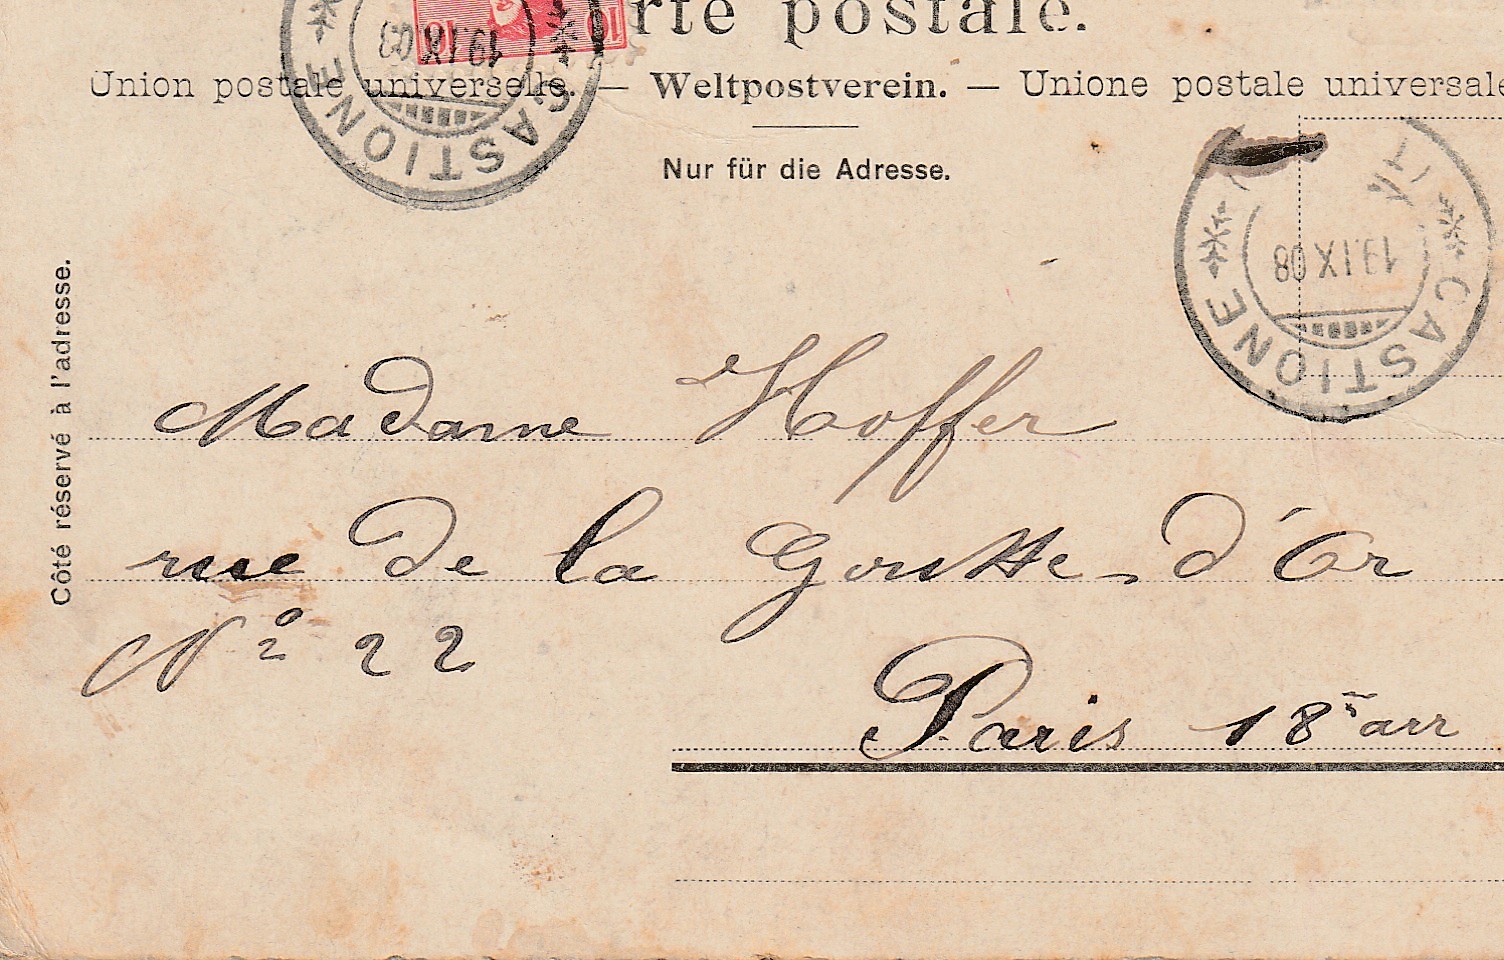 rte postale.
Union postale universelle. — Weltpostverein. — Unione postale universale
Nur für die Adresse.
Côté réservé à l'adresse.
10 10
CASTIONE
19.IX 08
CASTIONE
19.IX 08
Madame Hoffer
rue de la Goutte-d'Or
Nº 22
Paris 18e arr